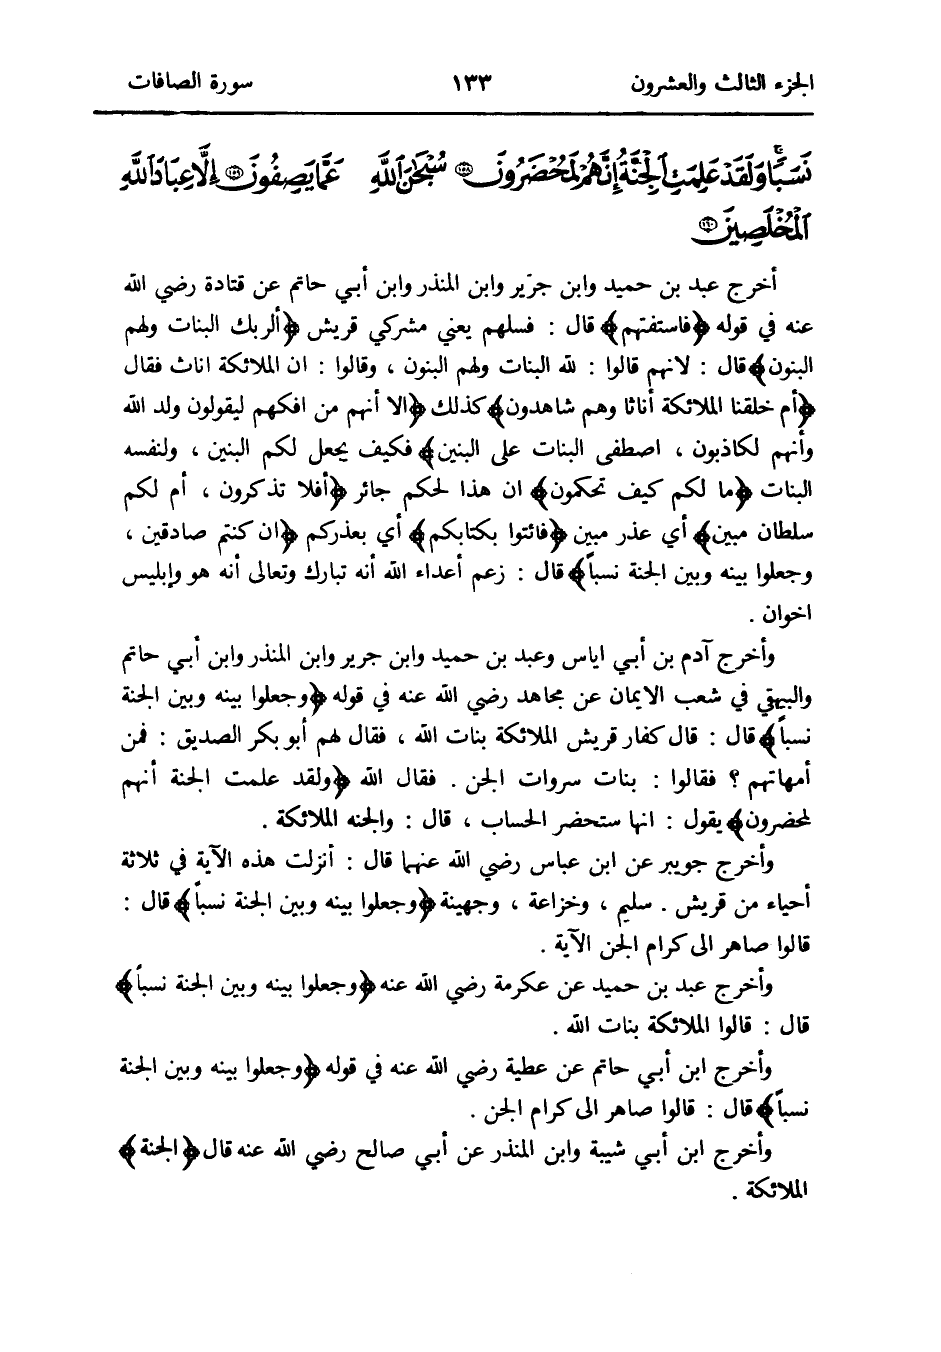 الجزء الثالث والعشرون ١٣٣ سورة الصافات
نَسَبًا وَلَقَدْ عَلِمَتِ ٱلْجِنَّةُ إِنَّهُمْ لَمُحْضَرُونَ ١٥٨ سُبْحَٰنَ ٱللَّهِ عَمَّا يَصِفُونَ ١٥٩ إِلَّا عِبَادَ ٱللَّهِ
ٱلْمُخْلَصِينَ ١٦٠
أخرج عبد بن حميد وابن جرير وابن المنذر وابن أبي حاتم عن قتادة رضي الله
عنه في قوله ﴿فاستفتهم﴾ قال : فسلهم يعني مشركي قريش ﴿ألربك البنات ولهم
البنون﴾ قال : لانهم قالوا : لله البنات ولهم البنون ، وقالوا : ان الملائكة اناث فقال
﴿أم خلقنا الملائكة أناثا وهم شاهدون﴾ كذلك ﴿الا أنهم من افكهم ليقولون ولد الله
وأنهم لكاذبون ، اصطفى البنات على البنين﴾ فكيف يجعل لكم البنين ، ولنفسه
البنات ﴿ما لكم كيف تحكمون﴾ ان هذا لحكم جائر ﴿أفلا تذكرون ، أم لكم
سلطان مبين﴾ أي عذر مبين ﴿فائتوا بكتابكم﴾ أي بعذركم ﴿ان كنتم صادقين ،
وجعلوا بينه وبين الجنة نسباً﴾ قال : زعم أعداء الله أنه تبارك وتعالى أنه هو وإبليس
اخوان .
وأخرج آدم بن أبي اياس وعبد بن حميد وابن جرير وابن المنذر وابن أبي حاتم
والبيهقي في شعب الايمان عن مجاهد رضي الله عنه في قوله ﴿وجعلوا بينه وبين الجنة
نسباً﴾ قال : قال كفار قريش الملائكة بنات الله ، فقال لهم أبو بكر الصديق : فمن
أمهاتهم ؟ فقالوا : بنات سروات الجن . فقال الله ﴿ولقد علمت الجنة أنهم
لمحضرون﴾ يقول : انها ستحضر الحساب ، قال : والجنه الملائكة .
وأخرج جويبر عن ابن عباس رضي الله عنهما قال : أنزلت هذه الآية في ثلاثة
أحياء من قريش . سليم ، وخزاعة ، وجهينة ﴿وجعلوا بينه وبين الجنة نسباً﴾ قال :
قالوا صاهر الى كرام الجن الآية .
وأخرج عبد بن حميد عن عكرمة رضي الله عنه ﴿وجعلوا بينه وبين الجنة نسباً﴾
قال : قالوا الملائكة بنات الله .
وأخرج ابن أبي حاتم عن عطية رضي الله عنه في قوله ﴿وجعلوا بينه وبين الجنة
نسباً﴾ قال : قالوا صاهر الى كرام الجن .
وأخرج ابن أبي شيبة وابن المنذر عن أبي صالح رضي الله عنه قال ﴿الجنة﴾
الملائكة .